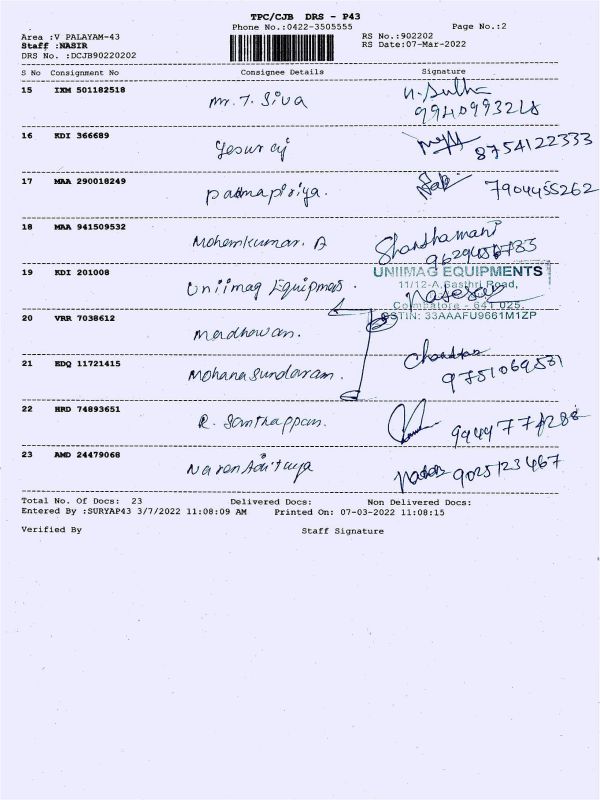 TPC/CJB DRS - P43
Phone No.:0422-3505555
Page No.:2
Area :V PALAYAM-43
RS No.:902202
Staff :NASIR
RS Date:07-Mar-2022
DRS No. :DCJB90220202
S No Consignment No Consignee Details Signature
15 IXM 501182518 Mr. T. Siva
9940993218
16 KDI 366689 Yesuraj 8754122333
17 MAA 290018249 Padmapiriya. 7904455262
18 MAA 941509532 Mohemkumar. A Shanthamani
19 KDI 201008 Uniimag Equipmets.
UNIIMAG EQUIPMENTS
11/12-A, Sasthri Road,
Coimbatore - 641 025.
GSTIN: 33AAAFU9661M1ZP
20 VRR 7038612 Madhawan.
21 EDQ 11721415 Mohanasundaram. 9751069531
22 HRD 74893651 R. Santhappan.
23 AMD 24479068 Naren Aditya 9025123467
Total No. Of Docs: 23 Delivered Docs: Non Delivered Docs:
Entered By :SURYAP43 3/7/2022 11:08:09 AM Printed On: 07-03-2022 11:08:15
Verified By Staff Signature